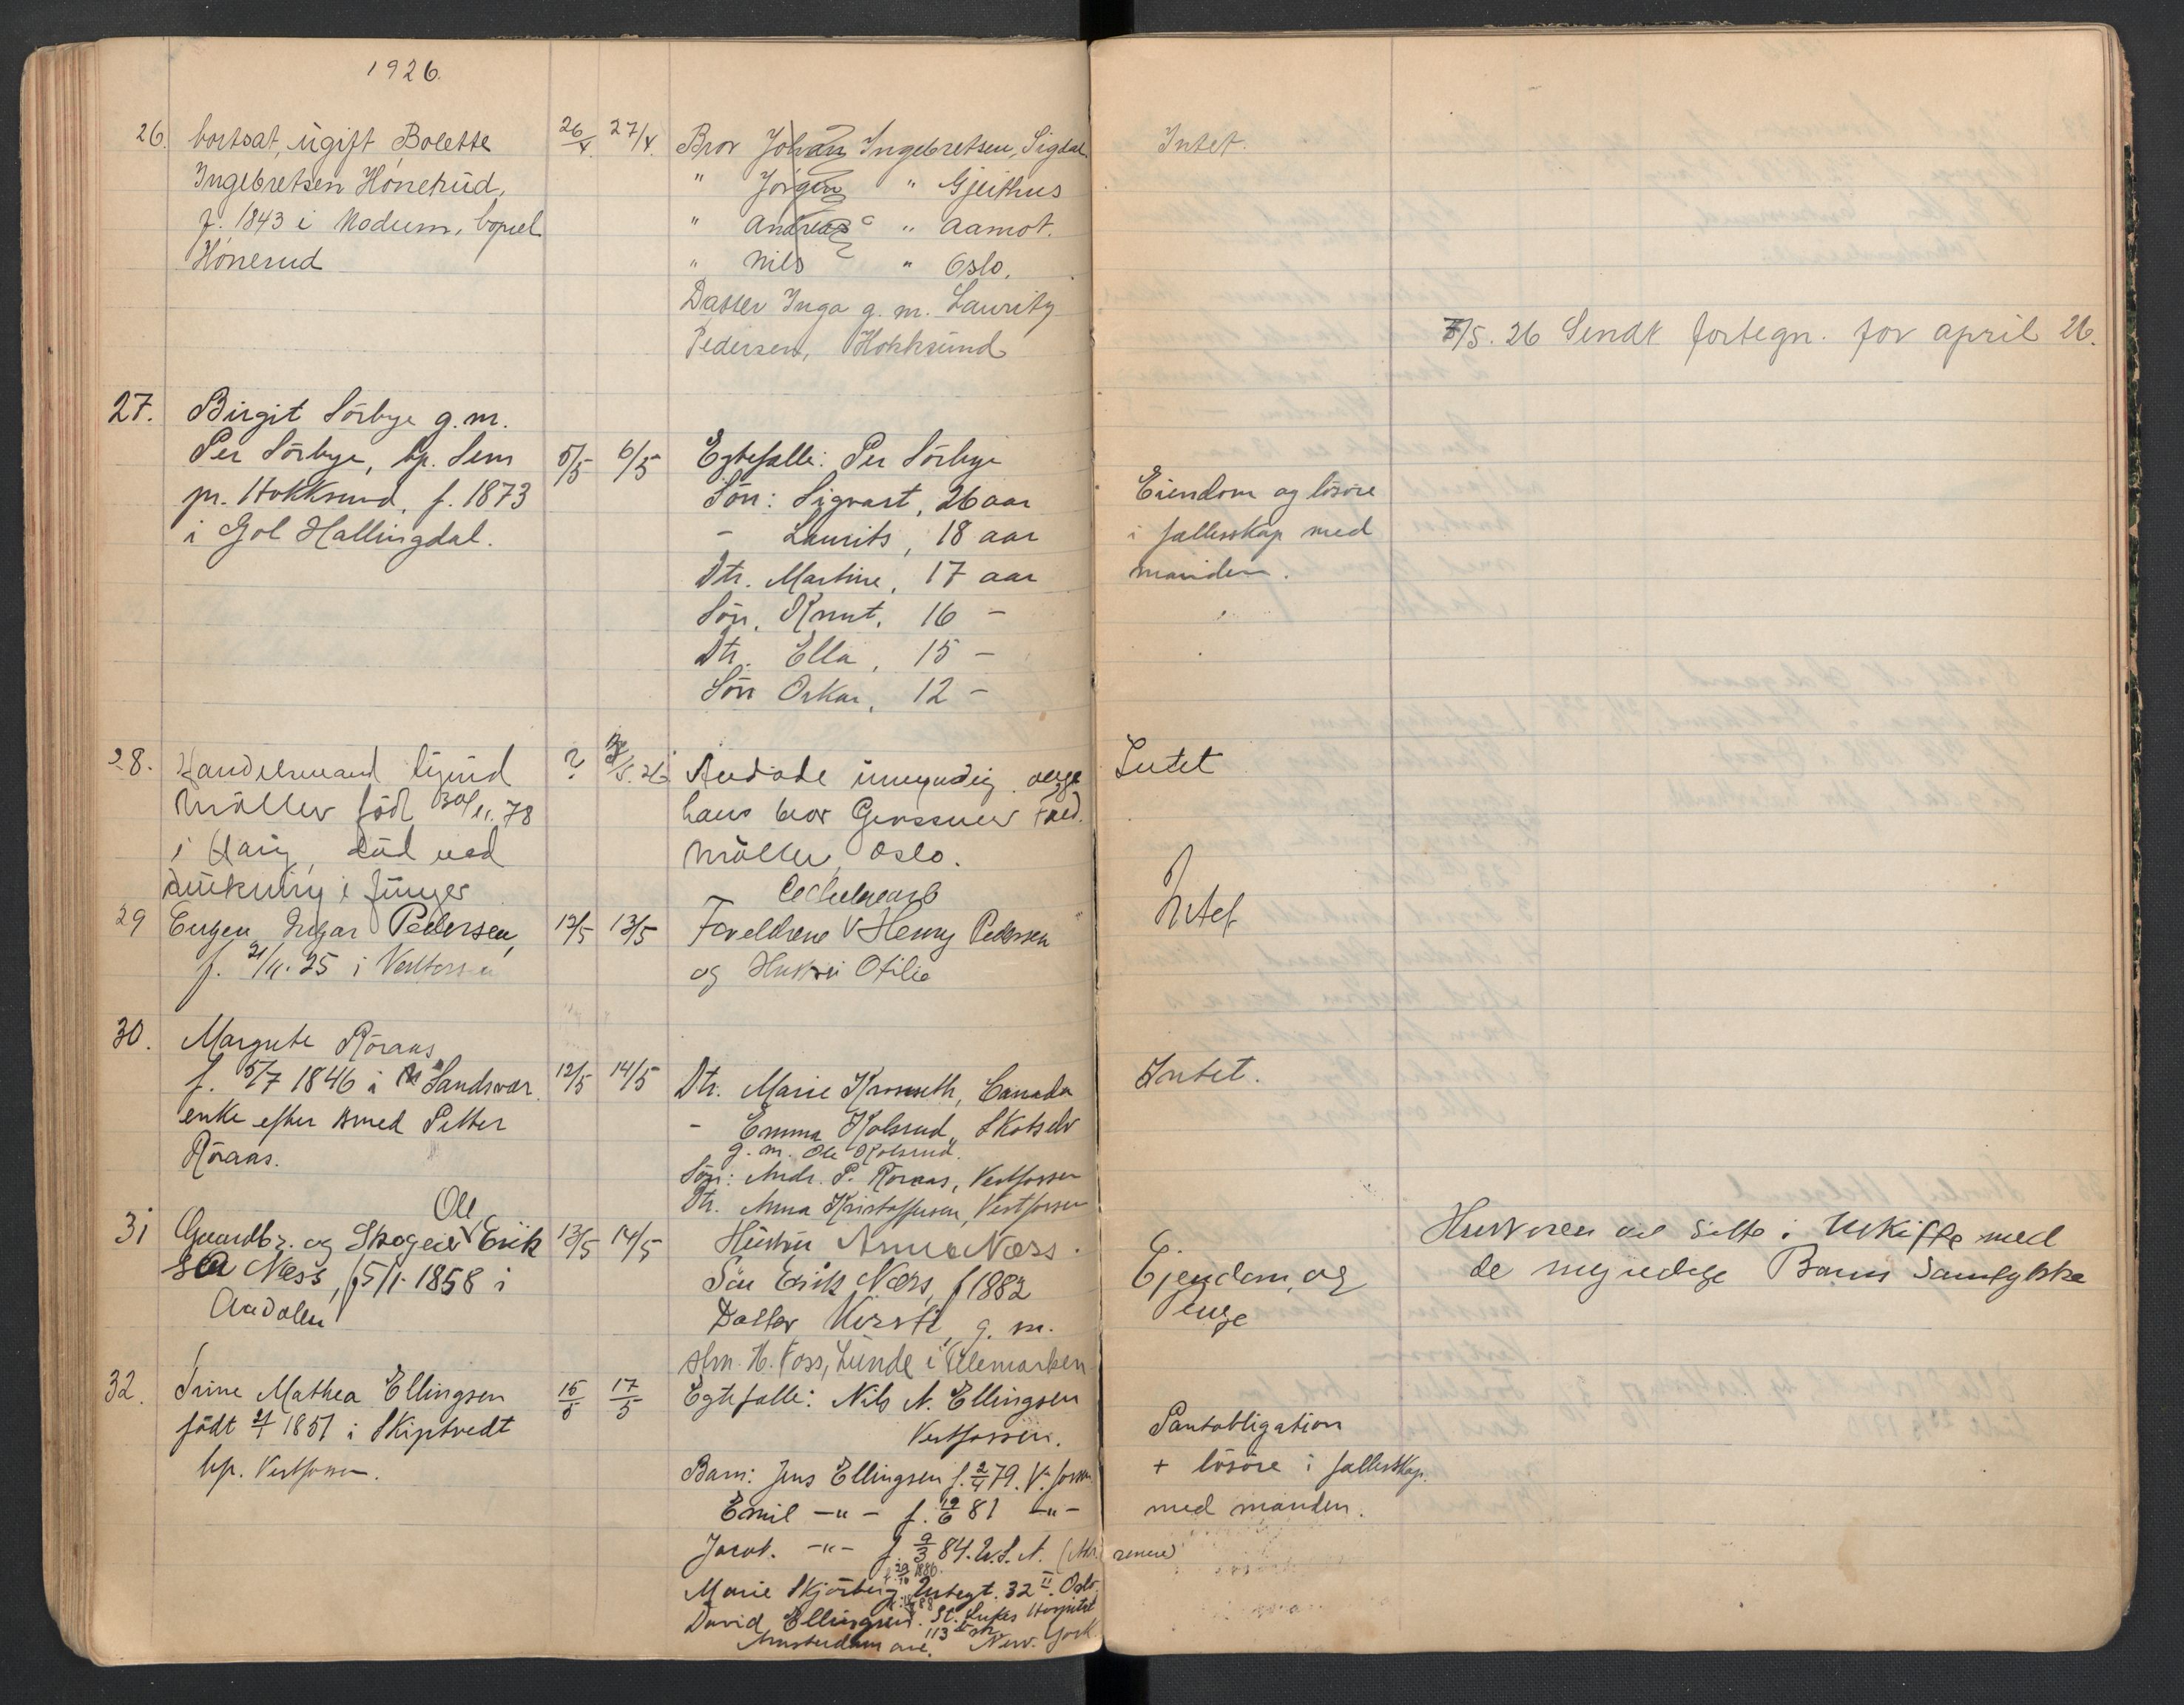 1926.
26. bortsat, ugift Bolette 26/4. 27/4. Bror Johan Ingebretsen, Sigdal. Intet.
Ingebretsen Hønerud, " Jørgen " Gjeithus
f. 1843 i Modum, bopæl " Andreas " Aamot.
Hønerud " Nils " Oslo.
Datter Inga g. m. Lauritz
Pedersen, Hokksund
7/5. 26 Sendt fortegn. for april 26.
27. Birgit Sörbye g. m.
Per Sörbye, bp. Sem 5/5 6/5 Egtefælle: Per Sörbye
pr. Hokksund, f. 1873 Sön: Sigvart, 26 aar Eiendom og lösöre
i Gol Hallingdal. - Laurits, 18 aar i fællesskap med
Dtr. Martine, 17 aar manden.
Sön. Knut, 16 -
Dtr. Ella, 15 -
Sön Oskar, 12 -
28. Handelsmand ? Avdøde umyndig. Intet
Møller född 30/11. 78 hans bror Grosserer Fred.
i død ved Møller, Oslo.
drukning i
29 Eugen Pedersen, 12/5 13/5 Foreldrene Henry Pedersen Intet
f. 21/11. 25 i og Hustru Otilie
30. Margrete Röraas
f. 5/7 1846 i Sandsvær. 12/5 14/5 Dtr. Marie Canada Intet.
enke efter Petter - Emma Kolsrud, Skotselv
Röraas. g. m. Ole Kolsrud.
Sön: Andr. P. Röraas, Vestfossen
Dtr. Anna Kristoffersen, Vestfossen
Ole
31 Gaardbr. og Skogeier Erik 13/5 14/5 Hustru Anna Næss. Hustruen vil sitte i Uskifte med
Næss, f 5/1. 1858 i Sön Erik Næss, f 1882 Ejendom og de myndige Barns Samtykke
Datter Kirsti, g. m. Penge
H. Foss, Lunde i Telemarken
32. Trine Mathea Ellingsen 15/5 17/5 Egtefælle: Nils N. Ellingsen
födt 21/1 1851 i Skiptvedt Vestfossen. Pantobligation
bp. Vestfossen. Barn: Jens Ellingsen f. 2/4 79. V. fossen + lösöre i fællesskap
Emil -"- f. 19/6 81 -"- med manden.
Jacob. -"- f. 9/3 84. U.S.A. (Adr. senere)
f. 29/10 1886.
Marie Skjörberg, 32 II. Oslo.
David Ellingsen. St. Lukes Hospital
Amsterdam ave. 113 str. New. York